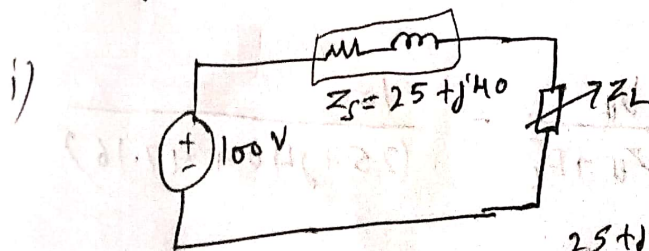 i)
Zs = 25 + j40
ZL
+
-
100 V
25 + j